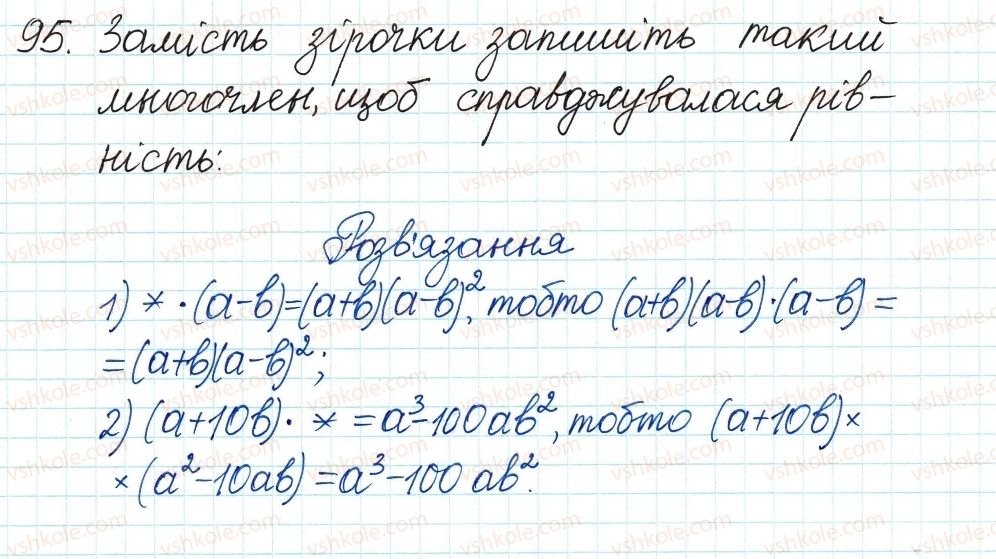 95. Замість зірочки запишіть такий
многочлен, щоб справджувалася рів-
ність:
Розв'язання
1) * · (a-b)=(a+b)(a-b)², тобто (a+b)(a-b)·(a-b)=
=(a+b)(a-b)²;
2) (a+10b)· * = a³-100ab², тобто (a+10b)×
×(a²-10ab)=a³-100ab².